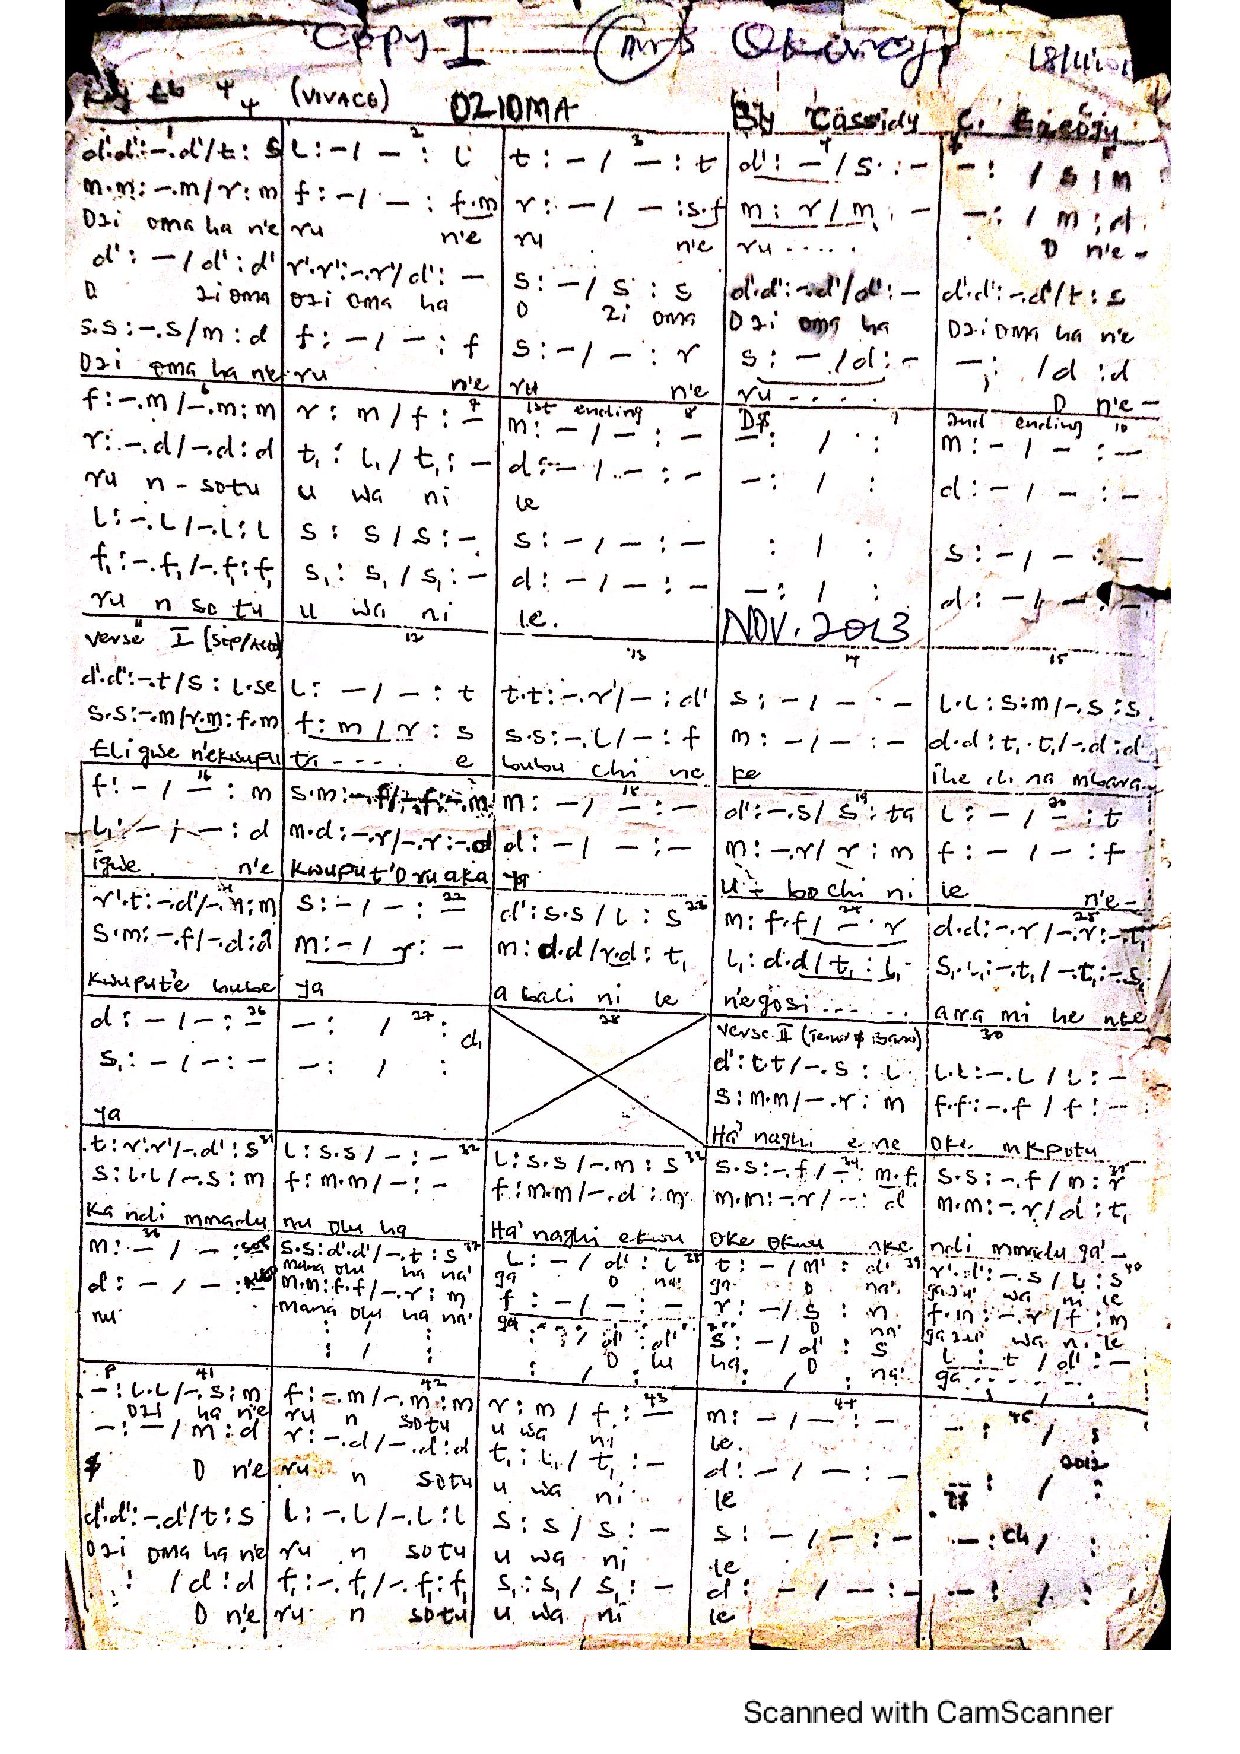 Copy I — Mrs Okoroji
18/11/201
Key Eb 4/4 (VIVACE) OZIOMA By Cassidy C.
1 2 3 4 5
d'.d':-.d'/t : s | l : - / - : l | t : - / - : t | d' : - / s : - | - : / s : m
m.m:-.m/r : m | f : - / - : f.m | r : - / - : s.f | m : r / m : - | - : / m : d
Ozi oma ha n'e | ru n'e | ru n'e | ru ..... | O n'e -
d' : - / d' : d' | r'.r':-.r'/d' : - | s : - / s : s | d'.d':-.d'/d' : - | d'.d':-.d'/t : s
O zi oma | Ozi oma ha | O zi oma | Ozi oma ha | Ozi oma ha n'e
s.s:-.s/m : d | f : - / - : f | s : - / - : r | s : - / d : - | - : / d : d
Ozi oma ha n'e | ru n'e | ru n'e | ru .... | O n'e -
6 7 1st ending 8 D$ 9 2nd ending 10
f:-.m/-.m:m | r : m / f : - | m : - / - : - | - : / : | m : - / - : -
r:-.d/-.d:d | t₁ : l₁ / t₁ : - | d : - / - : - | - : / : | d : - / - : -
ru n - sotu | u wa ni | le
l:-.l/-.l:l | s : s / s : - | s : - / - : - | : / : | s : - / - : -
f₁:-.f₁/-.f₁:f₁ | s₁ : s₁ / s₁ : - | d : - / - : - | - : / : | d : - / - : -
ru n so tu | u wa ni | le. | NOV. 2013
Verse I (Sop/Alto) 11 12 13 14 15
d'.d':-.t/s : l.se | l : - / - : t | t.t:-.r'/- : d' | s : - / - : - | l.l : s:m/-.s :s.
s.s:-.m/r.m: f.m | f : m / r : s | s.s:-.l/- : f | m : - / - : - | d.d : t₁.t₁/-.d :d
Eli gwe n'ekwupu | ta ----. e | bubu chi ne | ke | Ihe di na mbara
16 17 18 19 20
f : - / - : m | s.m:-.f/-.f:-.m | m : - / - : - | d':-.s/ s : ta | l : - / - : t
l₁ : - / - : d | m.d:-.r/-.r:-.d | d : - / - : - | m:-.r/ r : m | f : - / - : f
igwe n'e | kwuput'O ru aka | ya | u - bo chi ni | le n'e -
21 22 23 24 25
r'.t:-.d'/-.n:m | s : - / - : - | d' : s.s / l : s | m : f.f / - : r | d.d:-.r/-.r:-.t₁
s.m:-.f/-.d:d | m : - / r : - | m : d.d/r.d : t₁ | l₁ : d.d/t₁ : l₁ | s₁.l₁:-.t₁/-.t₁:-.s₁
kwupute bube | ya | a bali ni le | n'egosi ..... | ama mi he nke
26 27 28 Verse II (Tenor & Bass) 30
d : - / - : - | - : / : ch | d' : t.t/-.s : l | l.l:-.l/l : -
s₁ : - / - : - | - : / : | s : m.m/-.r : m | f.f:-.f/f : -
ya | Ha' naghi e ne | Oke mkpotu
31 32 33 34 35
t : r'.r'/-.d' : s | l : s.s / - : - | l : s.s/-.m : s | s.s:-.f/- : m.f | s.s:-.f/m : r
s : l.l/-.s : m | f : m.m/- : - | f : m.m/-.d : m | m.m:-.r/- : d | m.m:-.r/d : t₁
Ka ndi mmadu | nu olu ha | Ha' naghi ekwu | Oke Okwu nke | ndi mmadu ga' -
36 37 38 39 40
m : - / - : | s.s:d'.d'/-.t : s | l : - / d' : l | t : - / m' : d' | r'.d':-.s/l : s
mana olu ha na' | ga O na' | ga O na' | gazu wa ni le
d : - / - : | m.m:f.f/-.r : m | f : - / - : - | r : - / s : n | f.m:-.r/f : m
nu | mana olu ha na' | ga | O na' | gazu wa ni le
: / : | : / d' : d' | s : - / d' : s | l : t / d' : -
O lu | ha. O na' | ga ......
41 42 43 44 45
- : l.l/-.s : m | f:-.m/-.m:m | r : m / f : - | m : - / - : - | - : / :
Ozi ha n'e | ru n sotu | u wa ni | le.
- : - / m : d | r:-.d/-.d:d | t₁ : l₁ / t₁ : - | d : - / - : - | - : / :
$ O n'e | ru n sotu | u wa ni | le | 2012
d'.d':-.d'/t : s | l:-.l/-.l:l | s : s / s : - | s : - / - : - | - : ch / :
Ozi oma ha n'e | ru n sotu | u wa ni | le
: / d : d | f₁:-.f₁/-.f₁:f₁ | s₁ : s₁ / s₁ : - | d : - / - : - | - : / :
O n'e | ru n sotu | u wa ni | le
Scanned with CamScanner